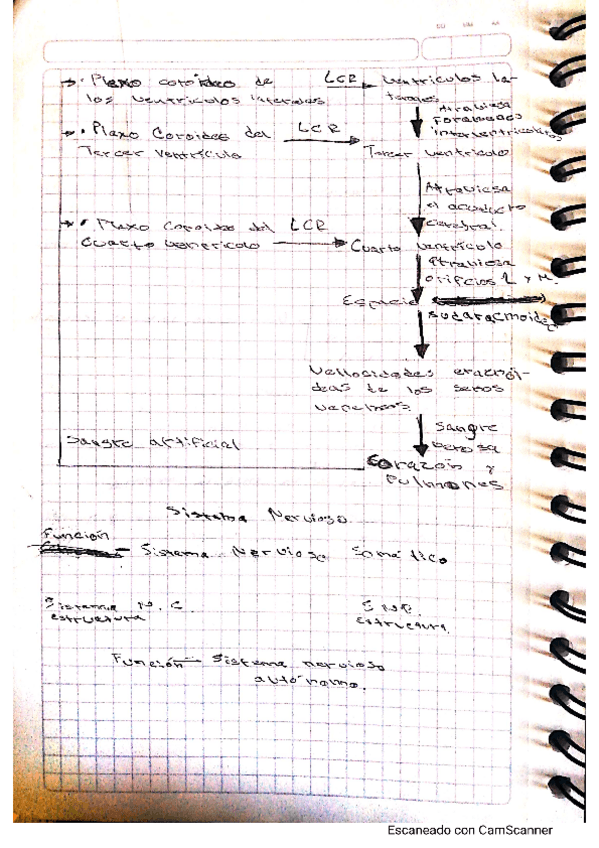 → • Plexo coroideo de LCR → ventriculos la-
los ventriculos laterales terales
Atrabiesa
Foramenes
interventriculares
→ • Plexo Coroideo del LCR →
Tercer ventrículo Tercer ventriculo
Atraviesa
el acueducto
cerebral
→ • Plexo Coroideo del LCR
Cuarto ventriculo → Cuarto ventrículo
Atraviesa
orificios L y M.
Espacio
subaracnoideo
Vellosidades aracnoi-
deas de los senos
venosos
Sangre
venosa
Sangre artificial
Corazón y
Pulmones
Sistema Nervioso
Función
- Sistema Nervioso Somático
Sistema N. C. S N P.
estructura Estructura.
Función — Sistema nervioso
autónomo.
Escaneado con CamScanner